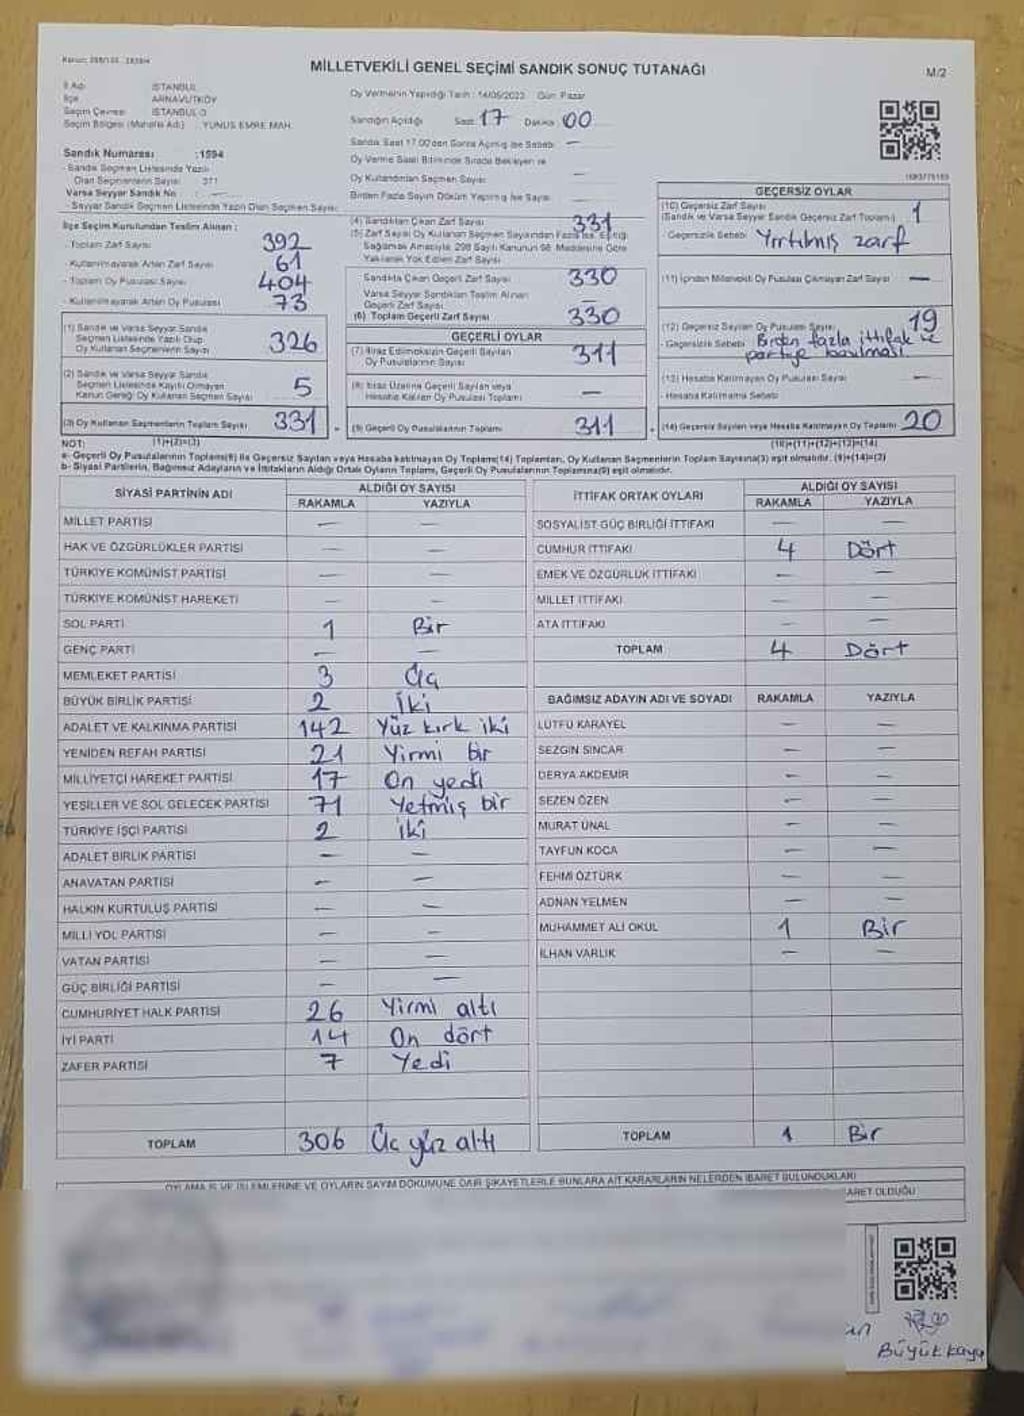 MİLLETVEKİLİ GENEL SEÇİMİ SANDIK SONUÇ TUTANAĞI
M/2
İl Adı İSTANBUL
İlçe ARNAVUTKÖY
Seçim Çevresi İSTANBUL-3
Seçim Bölgesi (Mahalle Adı) : YUNUS EMRE MAH.
Oy Vermenin Yapıldığı Tarih : 14/05/2023 Gün: Pazar
Sandığın Açıldığı Saat 17 Dakika 00
Sandık Saat 17.00'den Sonra Açılmış İse Sebebi —
Oy Verme Saati Bitiminde Sırada Bekleyen ve
Oy Kullandırılan Seçmen Sayısı —
Birden Fazla Sayım Döküm Yapılmış İse Sayısı —
Sandık Numarası :1594
- Sandık Seçmen Listesinde Yazılı
Olan Seçmenlerin Sayısı : 371
Varsa Seyyar Sandık No : —
- Seyyar Sandık Seçmen Listesinde Yazılı Olan Seçmen Sayısı:
İlçe Seçim Kurulundan Teslim Alınan :
- Toplam Zarf Sayısı 392
- Kullanılmayarak Artan Zarf Sayısı 61
- Toplam Oy Pusulası Sayısı 404
- Kullanılmayarak Artan Oy Pusulası 73
(1) Sandık ve Varsa Seyyar Sandık
Seçmen Listesinde Yazılı Olup
Oy Kullanan Seçmenlerin Sayısı 326
(2) Sandık ve Varsa Seyyar Sandık
Seçmen Listesinde Kayıtlı Olmayan
Kanun Gereği Oy Kullanan Seçmen Sayısı 5
(3) Oy Kullanan Seçmenlerin Toplam Sayısı 331
(1)+(2)=(3)
(4) Sandıktan Çıkan Zarf Sayısı 331
(5) Zarf Sayısı Oy Kullanan Seçmen Sayısından Fazla ise, Eşitliği
Sağlamak Amacıyla, 298 Sayılı Kanunun 98. Maddesine Göre
Yakılarak Yok Edilen Zarf Sayısı
Sandıkta Çıkan Geçerli Zarf Sayısı 330
Varsa Seyyar Sandıktan Teslim Alınan
Geçerli Zarf Sayısı —
(6) Toplam Geçerli Zarf Sayısı 330
GEÇERLİ OYLAR
(7) İtiraz Edilmeksizin Geçerli Sayılan
Oy Pusulalarının Sayısı 311
(8) İtiraz Üzerine Geçerli Sayılan veya
Hesaba Katılan Oy Pusulası Toplamı —
(9) Geçerli Oy Pusulalarının Toplamı 311
GEÇERSİZ OYLAR
(10) Geçersiz Zarf Sayısı
(Sandık ve Varsa Seyyar Sandık Geçersiz Zarf Toplamı) 1
- Geçersizlik Sebebi Yırtılmış zarf
(11) İçinden Milletvekili Oy Pusulası Çıkmayan Zarf Sayısı —
(12) Geçersiz Sayılan Oy Pusulası Sayısı 19
- Geçersizlik Sebebi Birden fazla ittifak ve
partiye basılması
(13) Hesaba Katılmayan Oy Pusulası Sayısı —
- Hesaba Katılmama Sebebi
(14) Geçersiz Sayılan veya Hesaba Katılmayan Oy Toplamı 20
(10)+(11)+(12)+(13)=(14)
NOT:
a- Geçerli Oy Pusulalarının Toplamı(9) ile Geçersiz Sayılan veya Hesaba katılmayan Oy Toplamı(14) Toplamları, Oy Kullanan Seçmenlerin Toplam Sayısına(3) eşit olmalıdır. (9)+(14)=(3)
b- Siyasi Partilerin, Bağımsız Adayların ve İttifakların Aldığı Ortak Oyların Toplamı, Geçerli Oy Pusulalarının Toplamına(9) eşit olmalıdır.
SİYASİ PARTİNİN ADI ALDIĞI OY SAYISI
RAKAMLA YAZIYLA
MİLLET PARTİSİ — —
HAK VE ÖZGÜRLÜKLER PARTİSİ — —
TÜRKİYE KOMÜNİST PARTİSİ — —
TÜRKİYE KOMÜNİST HAREKETİ — —
SOL PARTİ 1 Bir
GENÇ PARTİ — —
MEMLEKET PARTİSİ 3 Üç
BÜYÜK BİRLİK PARTİSİ 2 İki
ADALET VE KALKINMA PARTİSİ 142 Yüz kırk iki
YENİDEN REFAH PARTİSİ 21 Yirmi bir
MİLLİYETÇİ HAREKET PARTİSİ 17 On yedi
YEŞİLLER VE SOL GELECEK PARTİSİ 71 Yetmiş bir
TÜRKİYE İŞÇİ PARTİSİ 2 iki
ADALET BİRLİK PARTİSİ — —
ANAVATAN PARTİSİ — —
HALKIN KURTULUŞ PARTİSİ — —
MİLLİ YOL PARTİSİ — —
VATAN PARTİSİ — —
GÜÇ BİRLİĞİ PARTİSİ — —
CUMHURİYET HALK PARTİSİ 26 Yirmi altı
İYİ PARTİ 14 On dört
ZAFER PARTİSİ 7 Yedi
TOPLAM 306 Üç yüz altı
İTTİFAK ORTAK OYLARI ALDIĞI OY SAYISI
RAKAMLA YAZIYLA
SOSYALİST GÜÇ BİRLİĞİ İTTİFAKI — —
CUMHUR İTTİFAKI 4 Dört
EMEK VE ÖZGÜRLÜK İTTİFAKI — —
MİLLET İTTİFAKI — —
ATA İTTİFAKI — —
TOPLAM 4 Dört
BAĞIMSIZ ADAYIN ADI VE SOYADI RAKAMLA YAZIYLA
LÜTFÜ KARAYEL — —
SEZGİN SİNCAR — —
DERYA AKDEMİR — —
SEZEN ÖZEN — —
MURAT ÜNAL — —
TAYFUN KOCA — —
FEHMİ ÖZTÜRK — —
ADNAN YELMEN — —
MUHAMMET ALİ OKUL 1 Bir
İLHAN VARLIK — —
TOPLAM 1 Bir
OYLAMA İŞ VE İŞLEMLERİNE VE OYLARIN SAYIM DÖKÜMÜNE DAİR ŞİKAYETLERLE BUNLARA AİT KARARLARIN NELERDEN İBARET BULUNDUKLARI
Büyükkaya